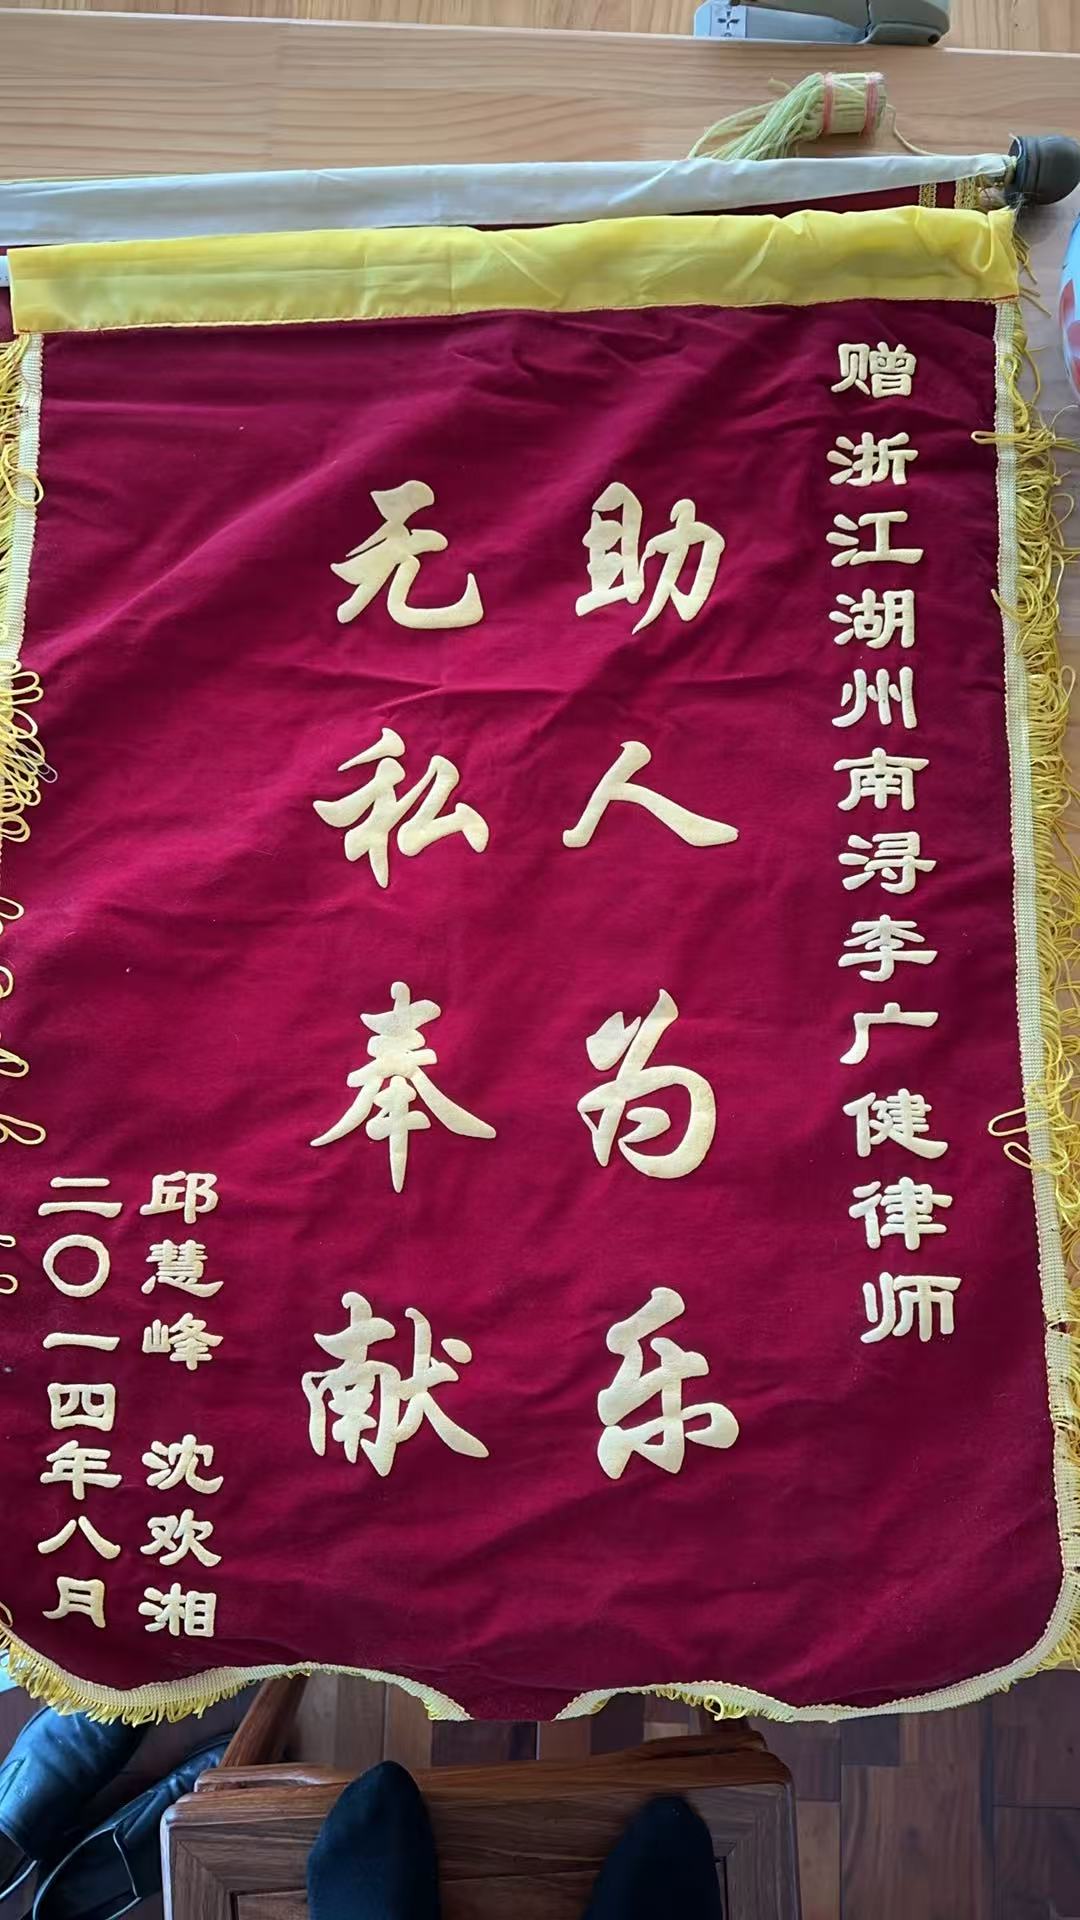 赠浙江湖州南浔李广健律师
助人为乐
无私奉献
邱慧峰 沈欢湘
二〇一四年八月